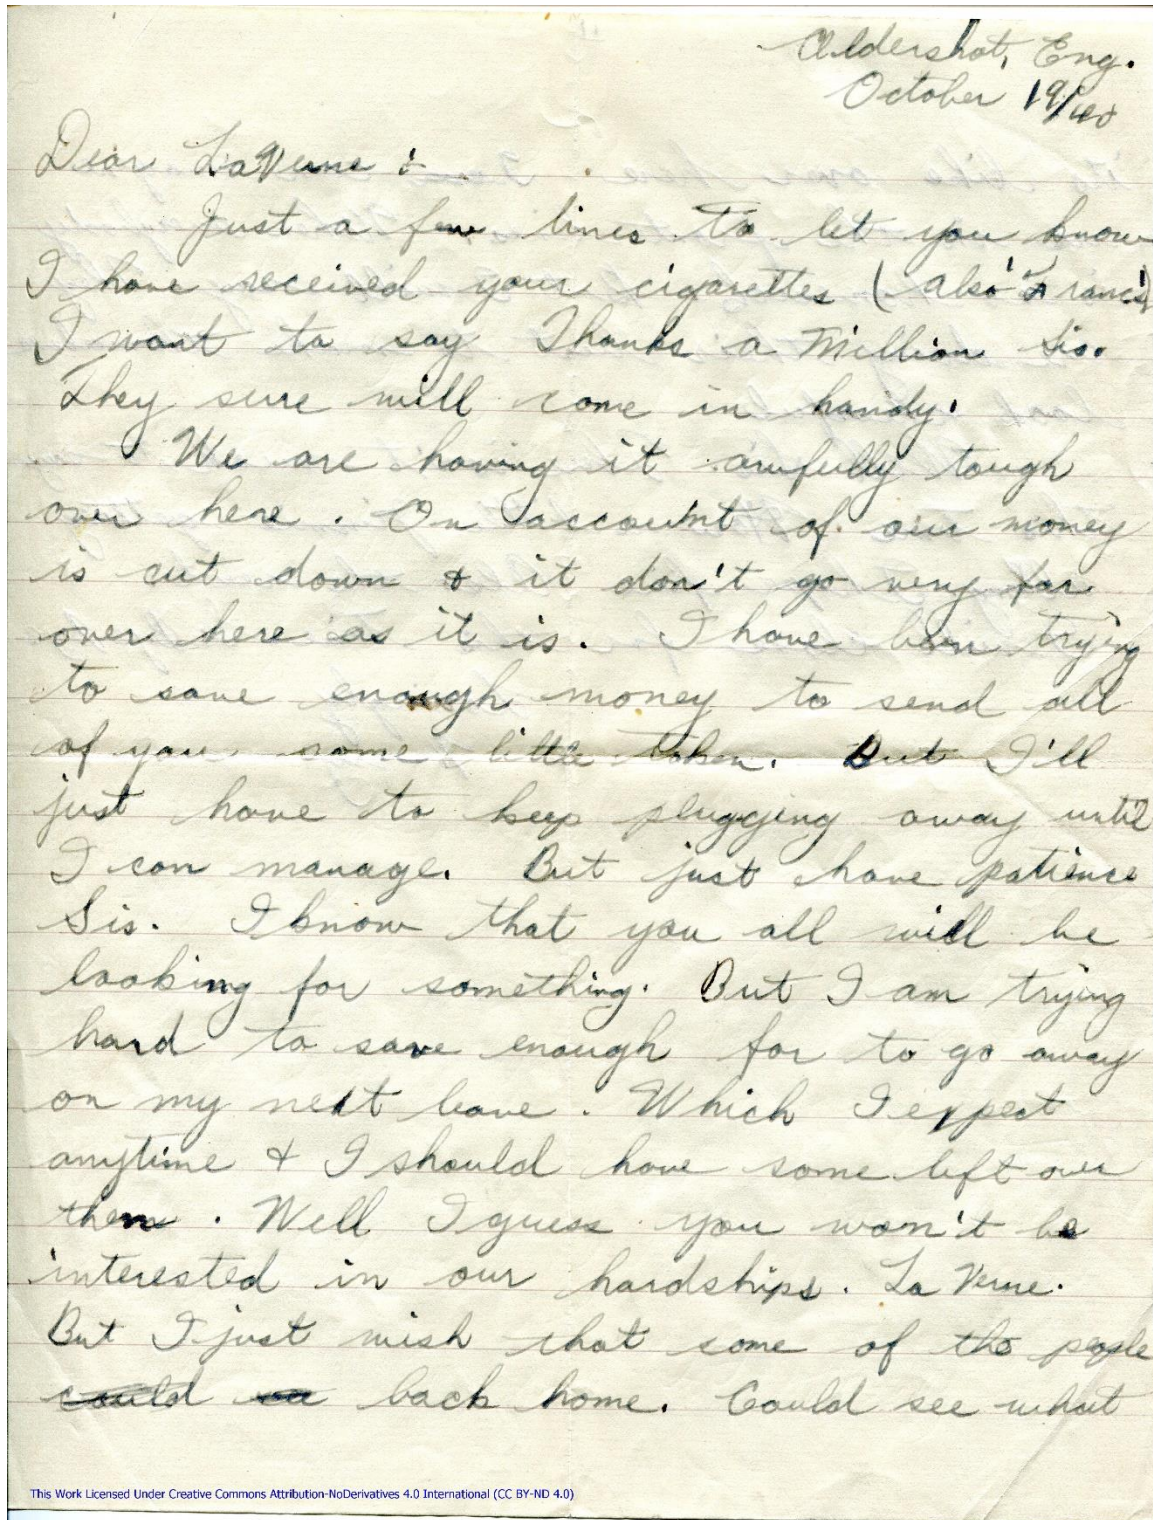 Aldershot, Eng.
October 19/40
Dear LaVerne :
Just a few lines to let you know
I have received your cigarettes (also Franc's)
I want to say Thanks a Million Sis.
They sure will come in handy.
We are having it awfully tough
over here. On account of our money
is cut down & it don't go very far
over here as it is. I have been trying
to save enough money to send all
of you some little token. But I'll
just have to keep plugging away until
I can manage. But just have patience
Sis. I know that you all will be
looking for something. But I am trying
hard to save enough for to go away
on my next leave. Which I expect
anytime & I should have some left over
then. Well I guess you won't be
interested in our hardships. La Verne.
But I just wish that some of the people
could back home. Could see what
This Work Licensed Under Creative Commons Attribution-NoDerivatives 4.0 International (CC BY-ND 4.0)